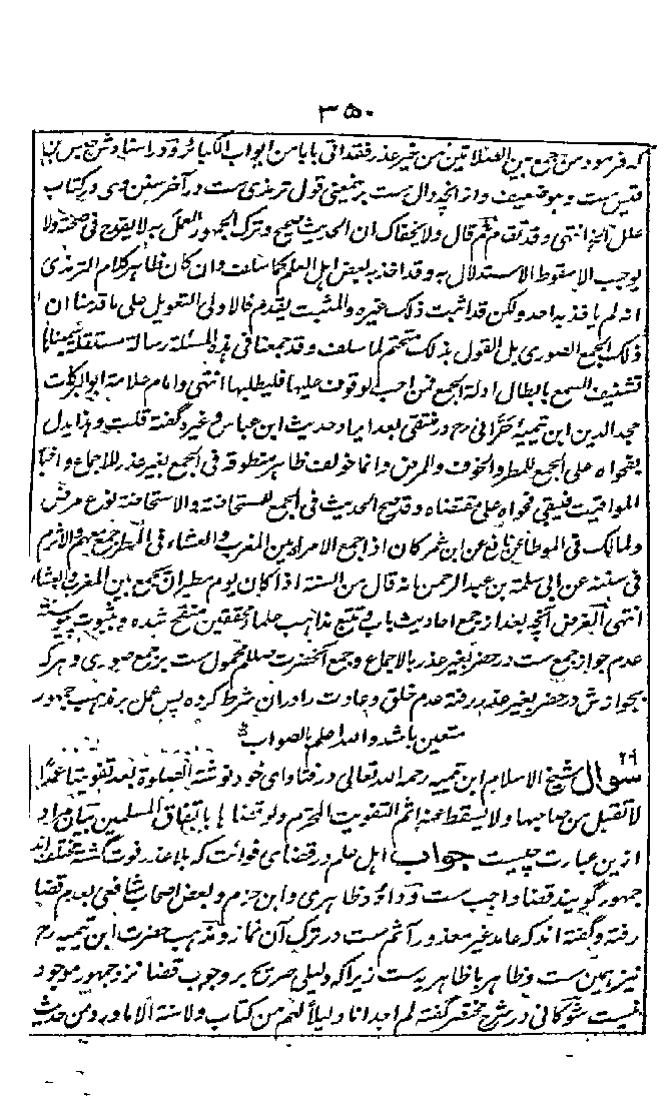 ۳۵۰
که فرمود من جمع بین الصلاتین من غیر عذر فقد اتی بابا من ابواب الکبائر و در اسناد وی
قیس ست و هو ضعیف و از انجه دال ست بر تضعیف قول ترمذی ست در آخر سنن وی در کتاب
علل الخ انتهی و قد تقدم ثم قال و لا یخفاک ان الحدیث صحیح و ترک الجمهور العمل به لا یقدح فی صحته ولا
یوجب الا سقوط الاستدلال به و قد اخذ به بعض اهل العلم کما سلف و ان کان ظاهر کلام الترمذی
انه لم یاخذ به احد و لکن قد اثبت ذلک غیره و المثبت یقدم فالاولی التعویل علی ما قدمنا ان
ذلک الجمع الصوری بل القول بذلک متحتم لما سلف و قد جمعنا فی هذه المسئلة رسالة مستقلة سمیناها
تشنیف السمع بابطال ادلة الجمع فمن احب الوقوف علیها فلیطلبها انتهی و امام علامه ابو البرکات
مجد الدین ابن تیمیه حرانی رح در منتقی بعد ایراد حدیث ابن عباس و غیره گفته قلت و هذا یدل
بفحواه علی الجمع للمطر و الخوف و المرض و انما خولف ظاهر منطوقه فی الجمع بغیر عذر للاجماع و اخبار
المواقیت فیبقی فحواه علی مقتضاه و قد صح الحدیث فی الجمع للمستحاضة و الاستحاضة نوع مرض
و لمالک فی الموطا عن نافع عن ابن عمر کان اذا جمع الامراء بین المغرب و العشاء فی المطر جمع معهم و للاثرم
فی سننه عن ابی سلمة بن عبد الرحمن انه قال من السنة اذا کان یوم مطیر ان یجمع بین المغرب و العشاء
انتهی الغرض آنچه بعد از جمع احادیث باب و تتبع مذاهب علما محققین منقح شده و بثبوت پیوسته
عدم جواز جمع ست در حضر بغیر عذر بالاجماع و جمع آنحضرت صلعم محمول ست بر جمع صوری و هر که
بجوازش در حضر بغیر عذر رفته عدم خلق و عادت را در ان شرط کرده پس عمل بر مذهب جمهور
متعین باشد و الله اعلم بالصواب
۲۹ سوال شیخ الاسلام ابن تیمیه رحمه الله تعالی در فتاوای خود نوشته الصلوة بعد تفویتها عمدا
لا تقبل من صاحبها و لا یسقط عنه اثم التفویت المحرم و لو قضاها باتفاق المسلمین بیان مراد
ازین عبارت چیست جواب اهل علم در قضای فوائت که بلا عذر فوت گشته مختلف اند
جمهور گویند قضا واجب ست و داؤد ظاهری و ابن حزم و بعض اصحاب شافعی بعدم قضا
رفته و گفته اند که عامد غیر معذور آثم ست در ترک آن نماز و مذهب حضرت ابن تیمیه رح
نیز همین ست و ظاهر با ظاهریه ست زیرا که دلیلی صریح بر وجوب قضا نزد جمهور موجود
نیست شوکانی در شرح مختصر گفته لم اجد انا دلیلا لهم من کتاب و لا سنة الا ما ورد من حدیث